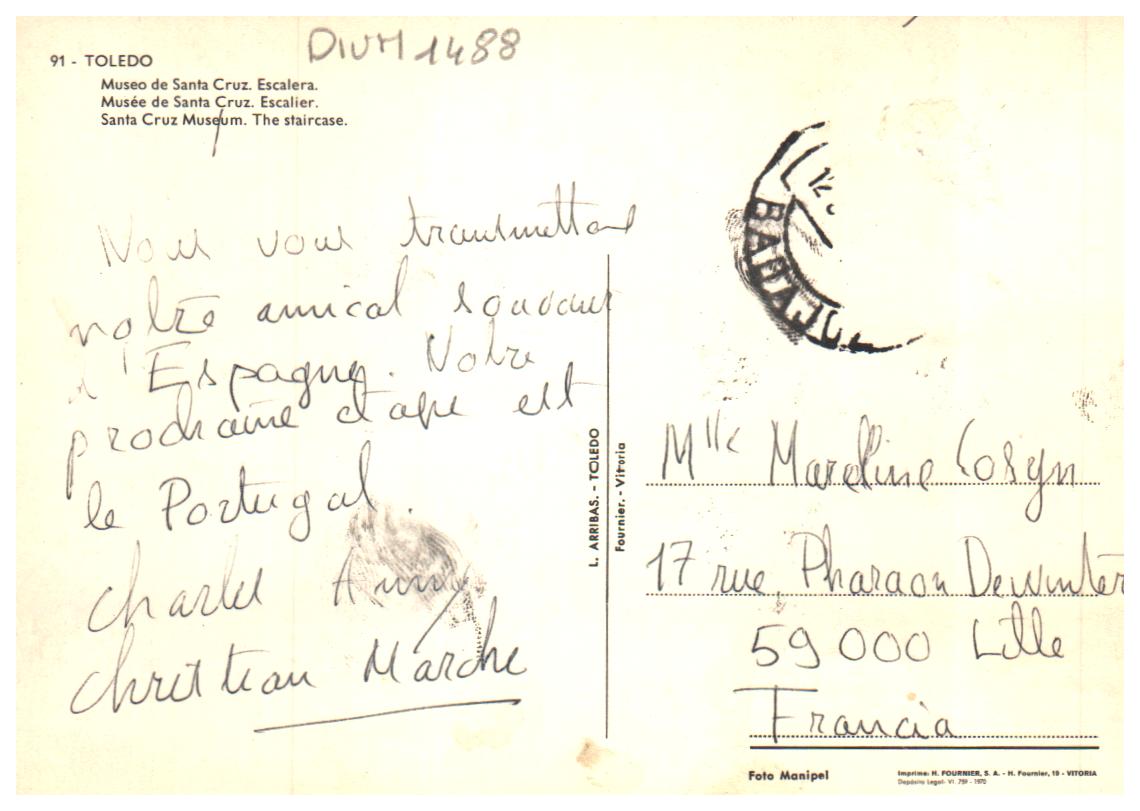 91 - TOLEDO
Museo de Santa Cruz. Escalera.
Musée de Santa Cruz. Escalier.
Santa Cruz Museum. The staircase.
DIVM 1488
Nous vous transmettons
notre amical souvenir
d'Espagne. Notre
prochaine étape est
le Portugal.
Charles Anny
Christian Marche
L. ARRIBAS. - TOLEDO
Fournier. - Vitoria
BADAJO
Mlle Marcelline Cosyn
17 rue Pharaon Dewinter
59000 Lille
Francia
Foto Manipel
Imprime: H. FOURNIER, S. A. - H. Fournier, 19 - VITORIA
Depósito Legal- VI. 759 - 1970